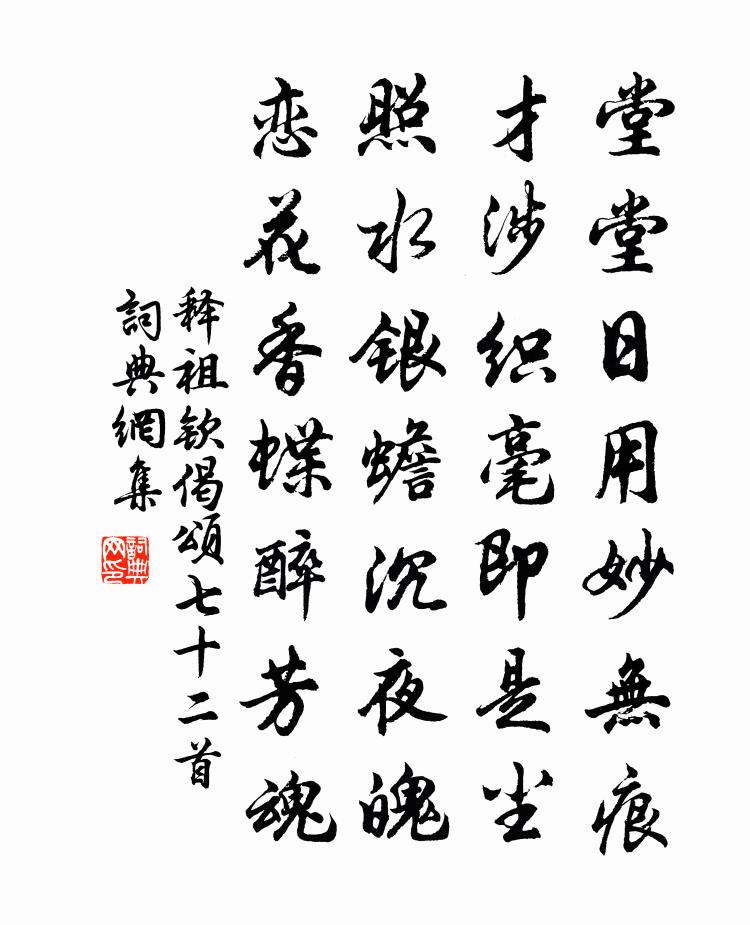 堂堂日用妙無痕
才涉织毫即是尘
照水银蟾沉夜魄
恋花香蝶醉芳魂
释祖钦偈頌七十二首
詞典網集
詞典网印